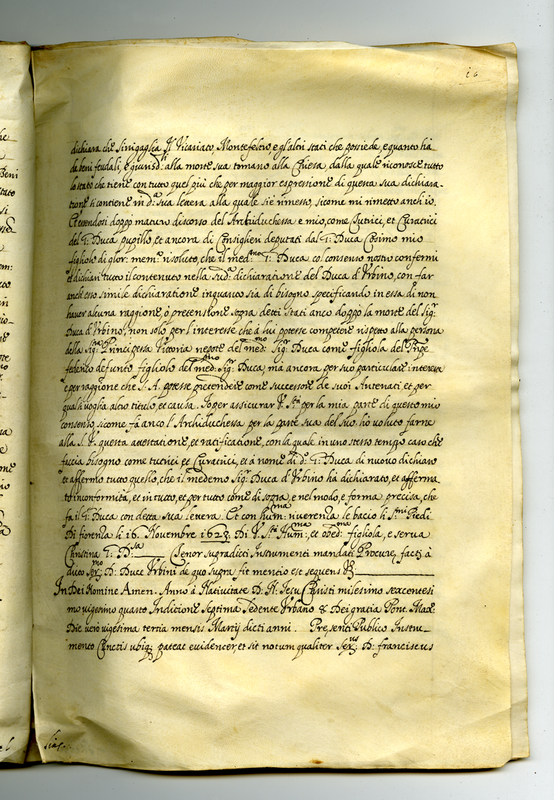 dichiara che Sinigaglia Il Vicariato, Montefeltro e gl'altri stati che possiede, e quanto ha
da beni feudali, e giurisd.ni alla morte sua tornano alla Chiesa, dalla quale riconosce tutto
lo stato che tiene con tutto quel più che per maggior espressione di questa sua dichiara-
tione si contiene in d.a sua lettera alla quale sie rimesso, sicome mi rimetto anch'io.
Et essendosi doppo maturo discorso del Archiduchessa e mio, come Tutrici, et Curatrici
del G: Duca pupillo et ancora di Consiglieri deputati dal G: Duca Cosimo mio
figliolo di glor: mem: risoluto, che il med.mo G: Duca co' consenso nostro confermi
et dichiari tutto il contenuto nella sud.a dichiaratione del Duca d'Urbino, con far
anch'esso simile dichiaratione inquanto sia di bisogno specificando in essa di non
haver alcuna raggione o pretensione sopra detti Stati anco doppo la morte del Sig:
Duca d'Urbino, non solo per l'interesse che à lui potesse competere rispetto alla persona
della Sig.ra Principessa Vittoria nepote del med.mo Sig: Duca come figliola del Prn̄pe
federigo defunto figliolo del med.mo Sig: Duca, ma ancora per suo particulare interesse
e per raggione che S. A. potesse pretendere come successore de suoi Antenati et per
qual si voglia altro titulo, et causa. Io per assicurar V. S.tà per la mia parte di questo mio
consenso, sicome fà anco l'Archiduchessa per la parte sua del suo, ho voluto farne
alla S. V. questa attestatione, et ratificatione, con la quale in uno stesso tempo caso che
faccia bisogno come tutrici et Curatrici, et à nome di d.o G: Duca di nuovo dichiaro
et affermo tutto quello, che il medemo Sig: Duca d'Urbino ha dichiarato, et afferma
to in conformità, et in tutto, et per tutto come di sopra, e nel modo, e forma precisa, che
fa il G: Duca con detta sua lettera. Et con hum:ma riverenza le bacio li S.mi Piedi
Di fiorenza li 16. Novembre 1623. Di V. S.tà Hum:ma et obed:ma figliola, e serva
Christina G: D.sa Tenor supradicti Instrumenti mandati Procure, facti à
dicto Ser.mo D: Duce Urbini de quo supra fit mentio est sequens
In Dei Nomine Amen. Anno à Nativitate D. N. Iesu Christi milesimo sexcentesi
mo vigesimo quarto Indictione Septima Sedente Urbano 8. Dei gratia Pont. Max.
Die vero vigesima tertia mensis Martij dicti anni. Presenti Publico Instru-
mento Cunctis ubiq; pateat evidenter, et sit notum qualiter Ser.mus D: franciscus